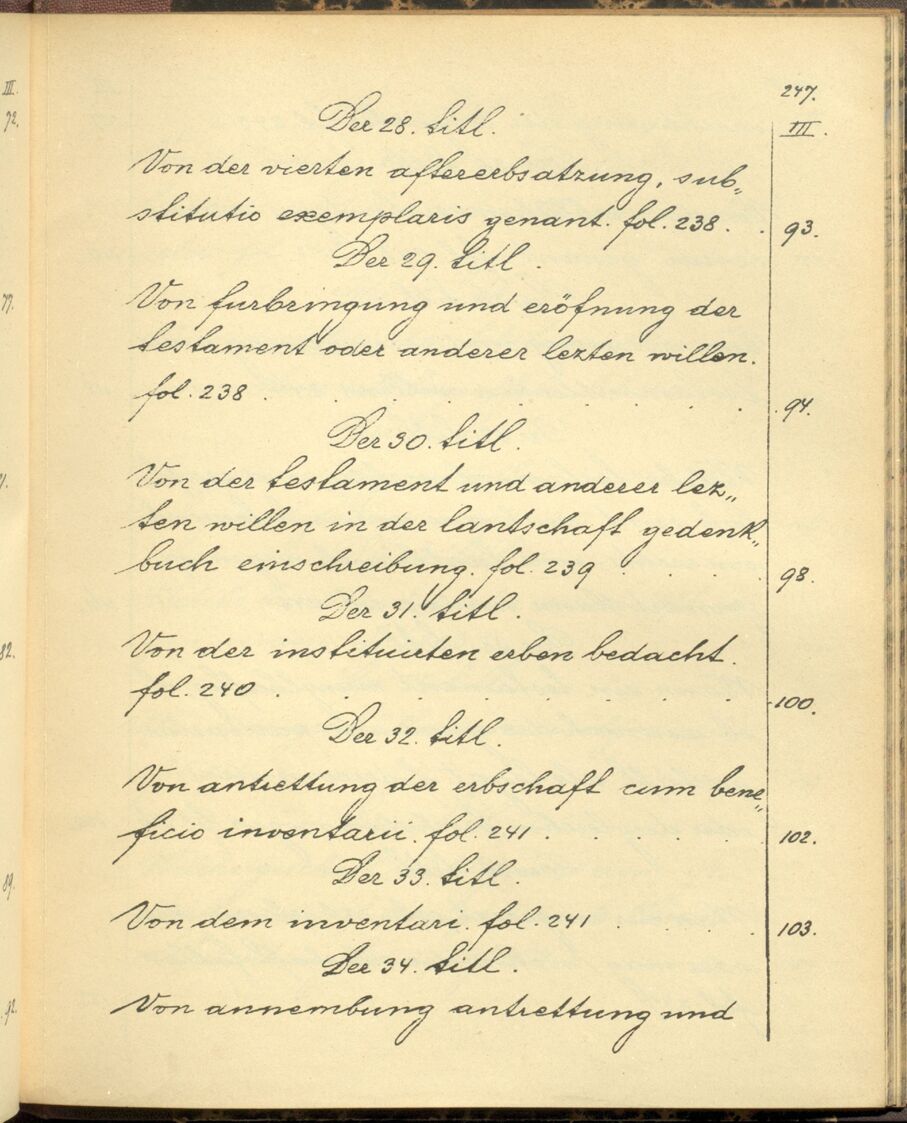 247.
III.
Der 28. titl.
Von der vierten aftererbsatzung, sub„
stitutio exemplaris genant. fol. 238 . . 93.
Der 29. titl.
Von furbringung und eröfnung der
testament oder anderer lezten willen.
fol. 238 . . . . . . . . 94.
Der 30. titl.
Von der testament und anderer lez„
ten willen in der lantschaft gedenk„
buch einschreibung. fol. 239 . . . . 98.
Der 31. titl.
Von der instituirten erben bedacht.
fol. 240 . . . . . . . . 100.
Der 32. titl.
Von antrettung der erbschaft cum bene„
ficio inventarii. fol. 241 . . . . 102.
Der 33. titl.
Von dem inventari. fol. 241 . . . . 103.
Der 34. titl.
Von annembung antrettung und
III.
72.
77.
82.
89.
92.